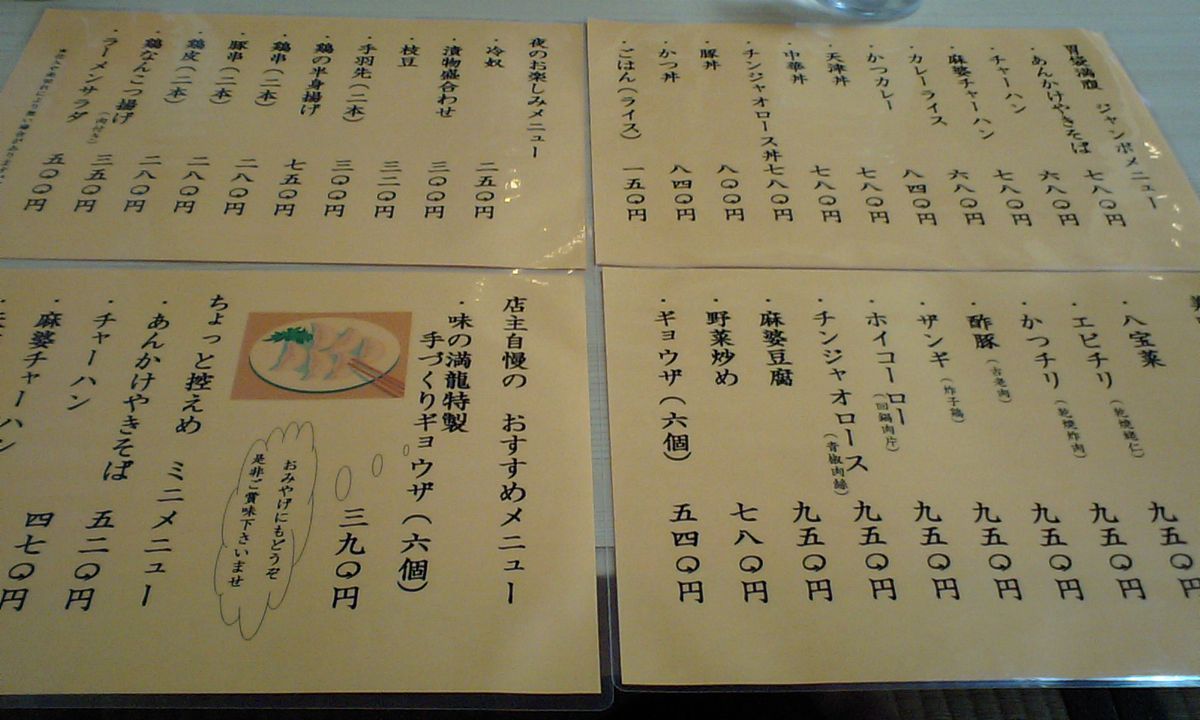 胃袋満腹 ジャンボメニュー
・あんかけやきそば 七八〇円
・チャーハン 六八〇円
・麻婆チャーハン 七八〇円
・カレーライス 六八〇円
・かつカレー 八四〇円
・天津丼 七八〇円
・中華丼 七八〇円
・チンジャオロース丼 七八〇円
・豚丼 八〇〇円
・かつ丼 八四〇円
・ごはん(ライス) 一五〇円
夜のお楽しみメニュー
・冷奴 二五〇円
・漬物盛合わせ 三〇〇円
・枝豆 三二〇円
・手羽先(二本) 三〇〇円
・鶏の半身揚げ 七五〇円
・鶏串(二本) 二八〇円
・豚串(二本) 二八〇円
・鶏皮(二本) 二八〇円
・鶏なんこつ揚げ(肉付き) 三五〇円
・ラーメンサラダ 五〇〇円
・八宝菜
・エビチリ(乾焼蝦仁) 九五〇円
・かつチリ(乾焼炸肉) 九五〇円
・酢豚(古老肉) 九五〇円
・ザンギ(炸子鶏) 九五〇円
・ホイコーロー(回鍋肉片) 九五〇円
・チンジャオロース(青椒肉絲) 九五〇円
・麻婆豆腐 九五〇円
・野菜炒め 七八〇円
・ギョウザ(六個) 五四〇円
店主自慢の おすすめメニュー
・味の満龍特製
手づくりギョウザ(六個)
三九〇円
おみやげにもどうぞ
是非ご賞味下さいませ
ちょっと控えめ ミニメニュー
・あんかけやきそば 五二〇円
・チャーハン 四七〇円
・麻婆チャーハン